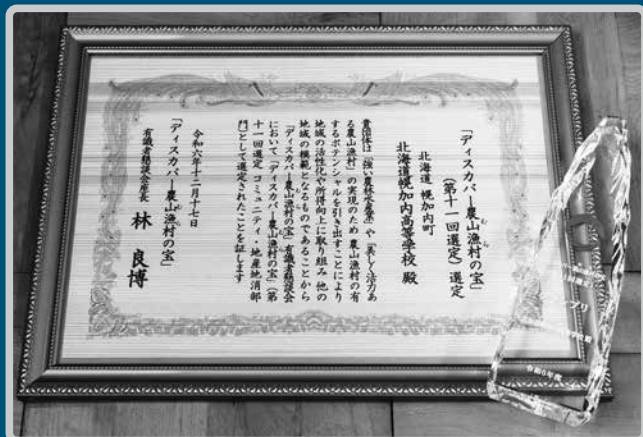 「ディスカバー農山漁村の宝」
むら
(第十一回選定)選定
北海道 幌加内町
北海道幌加内高等学校 殿
貴団体は「強い農林水産業」や「美しく活力あ
る農山漁村」の実現のため 農山漁村の有
するポテンシャルを引き出すことにより
地域の活性化や所得向上に取り組み 他の
地域の模範となるものであることから
「ディスカバー農山漁村の宝」有識者懇談会
むら
において「ディスカバー農山漁村の宝」(第
むら
十一回選定 コミュニティ・地産地消部
門)として選定されたことを証します
令和六年十二月十七日
「ディスカバー農山漁村の宝」
むら
有識者懇談会座長 林 良博
令和6年度